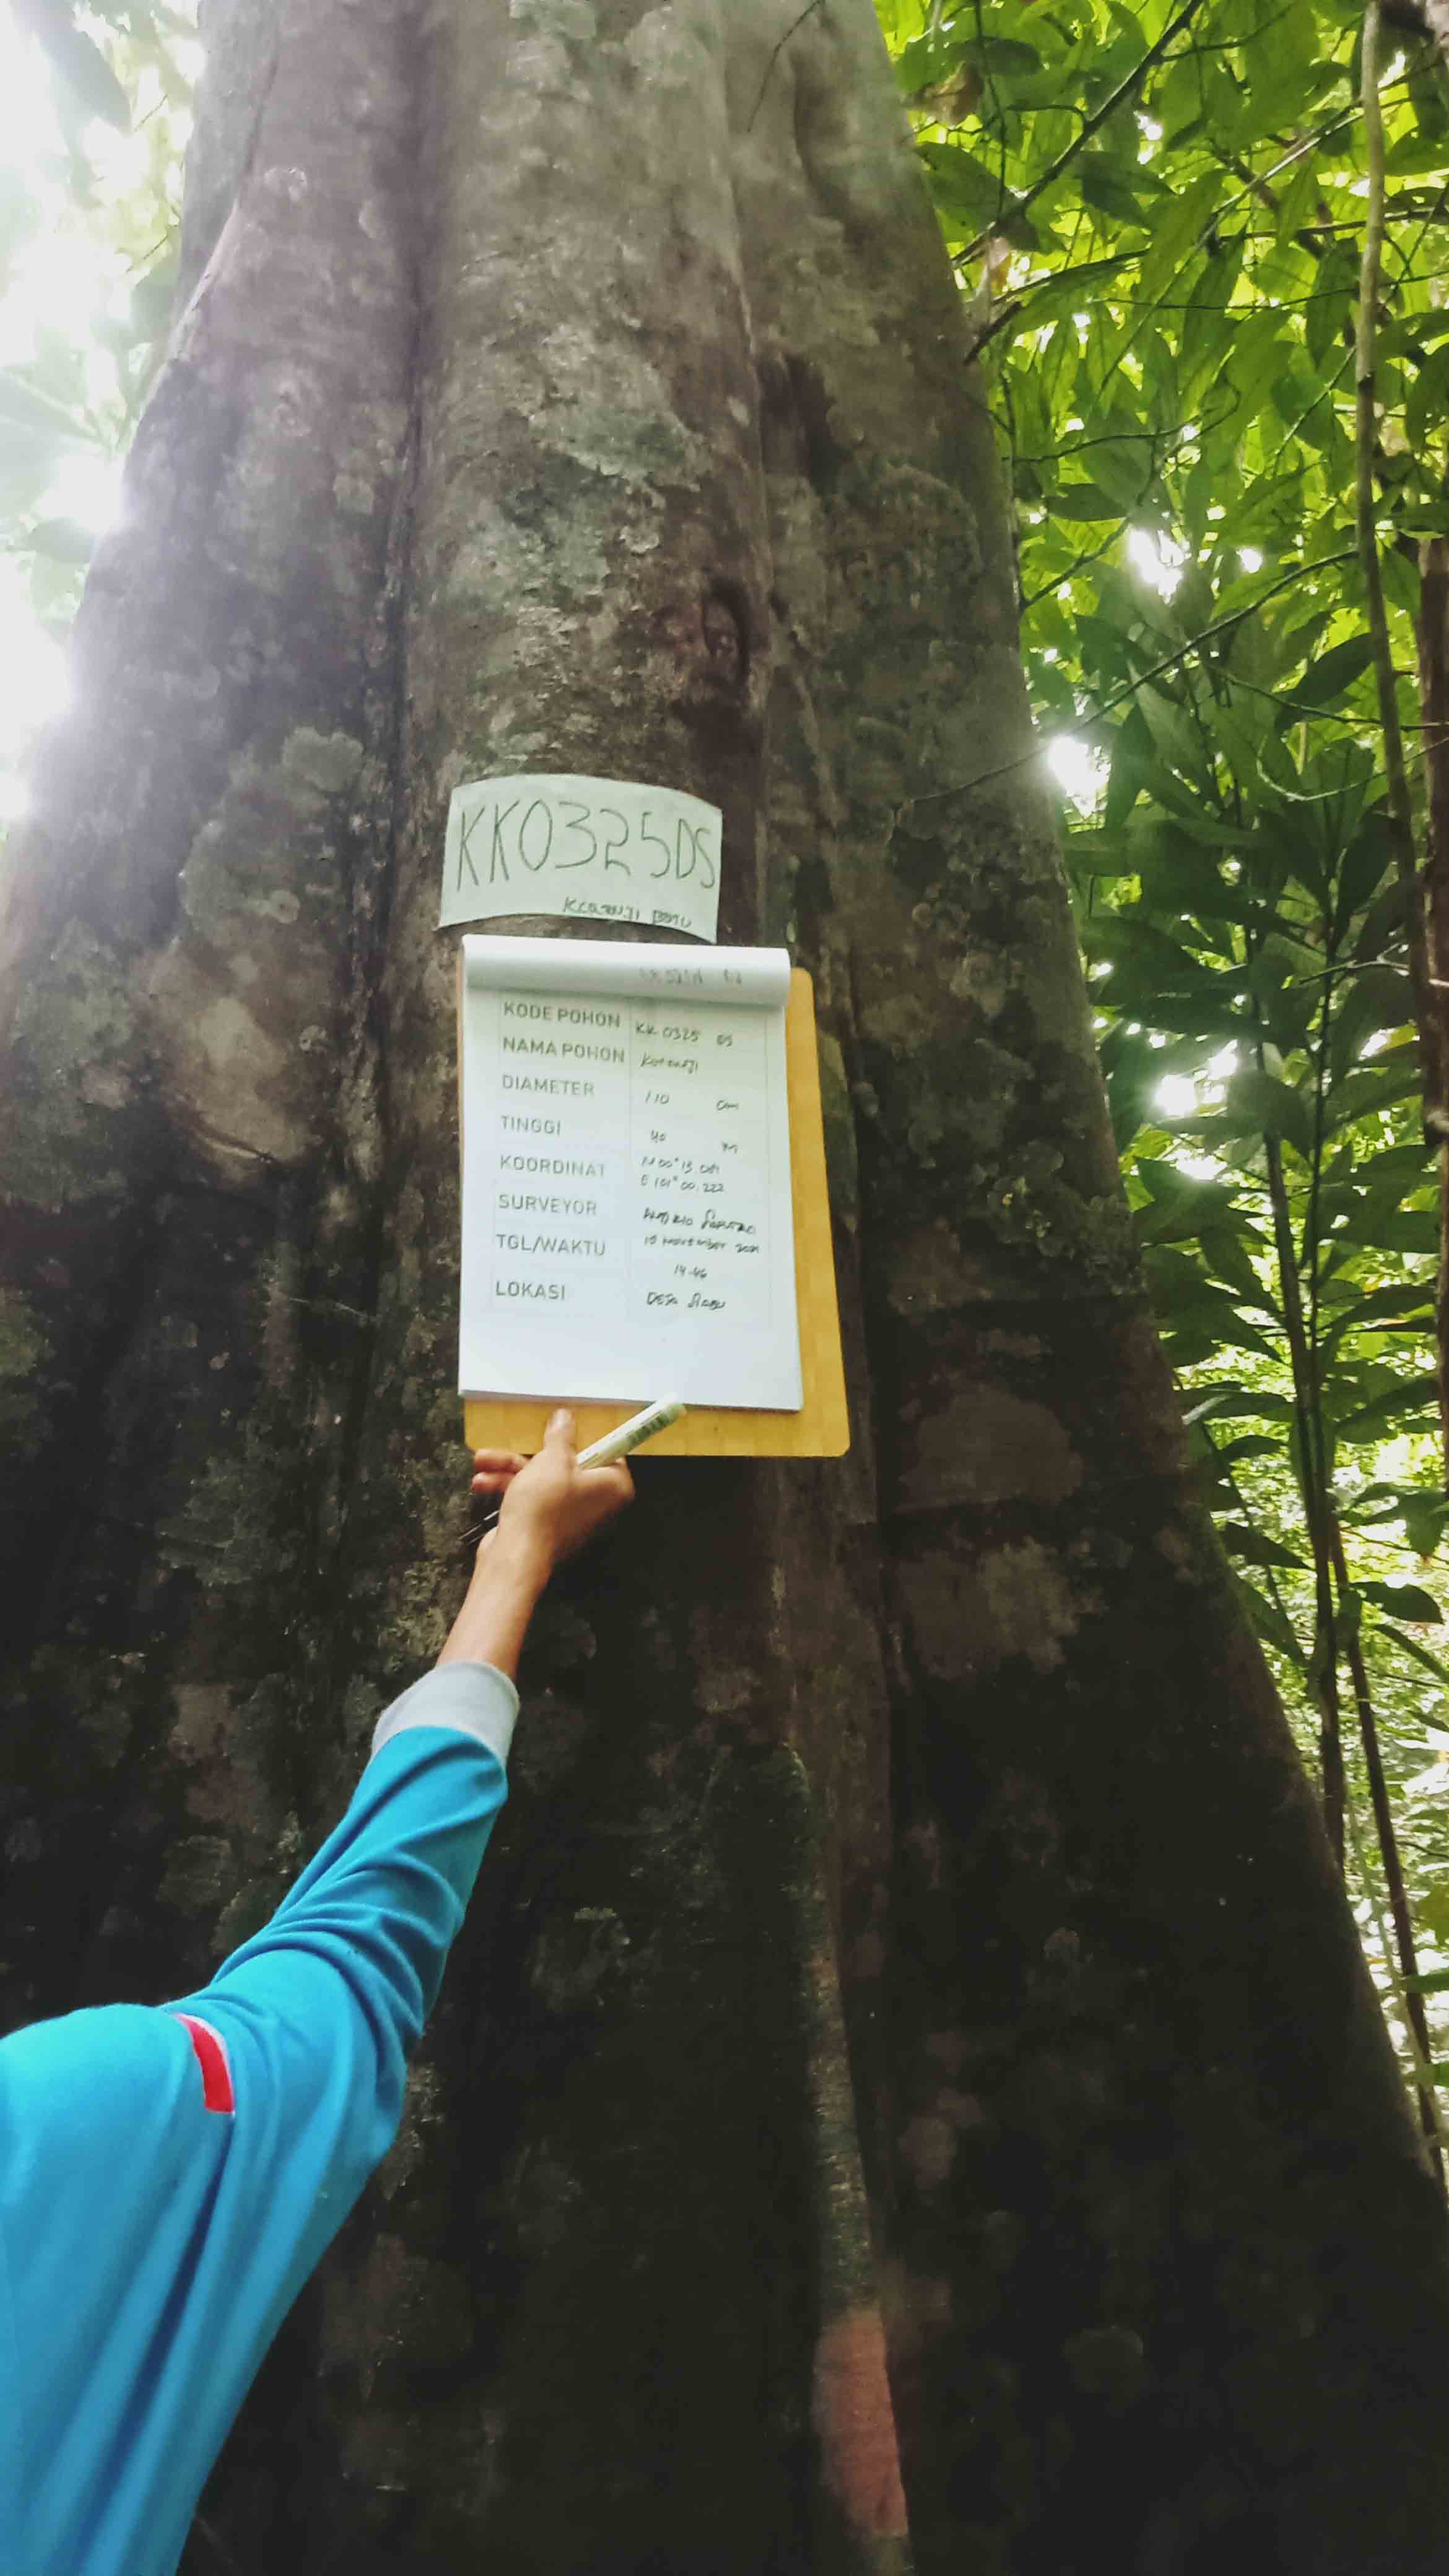 KK0325DS
KODE POHON KK 0325 DS
NAMA POHON Keranji
DIAMETER 110 cm
TINGGI 40 M
KOORDINAT N 00° 13.
E 101° 00.222
SURVEYOR
TGL/WAKTU 10 November 2021
14.46
LOKASI DESA